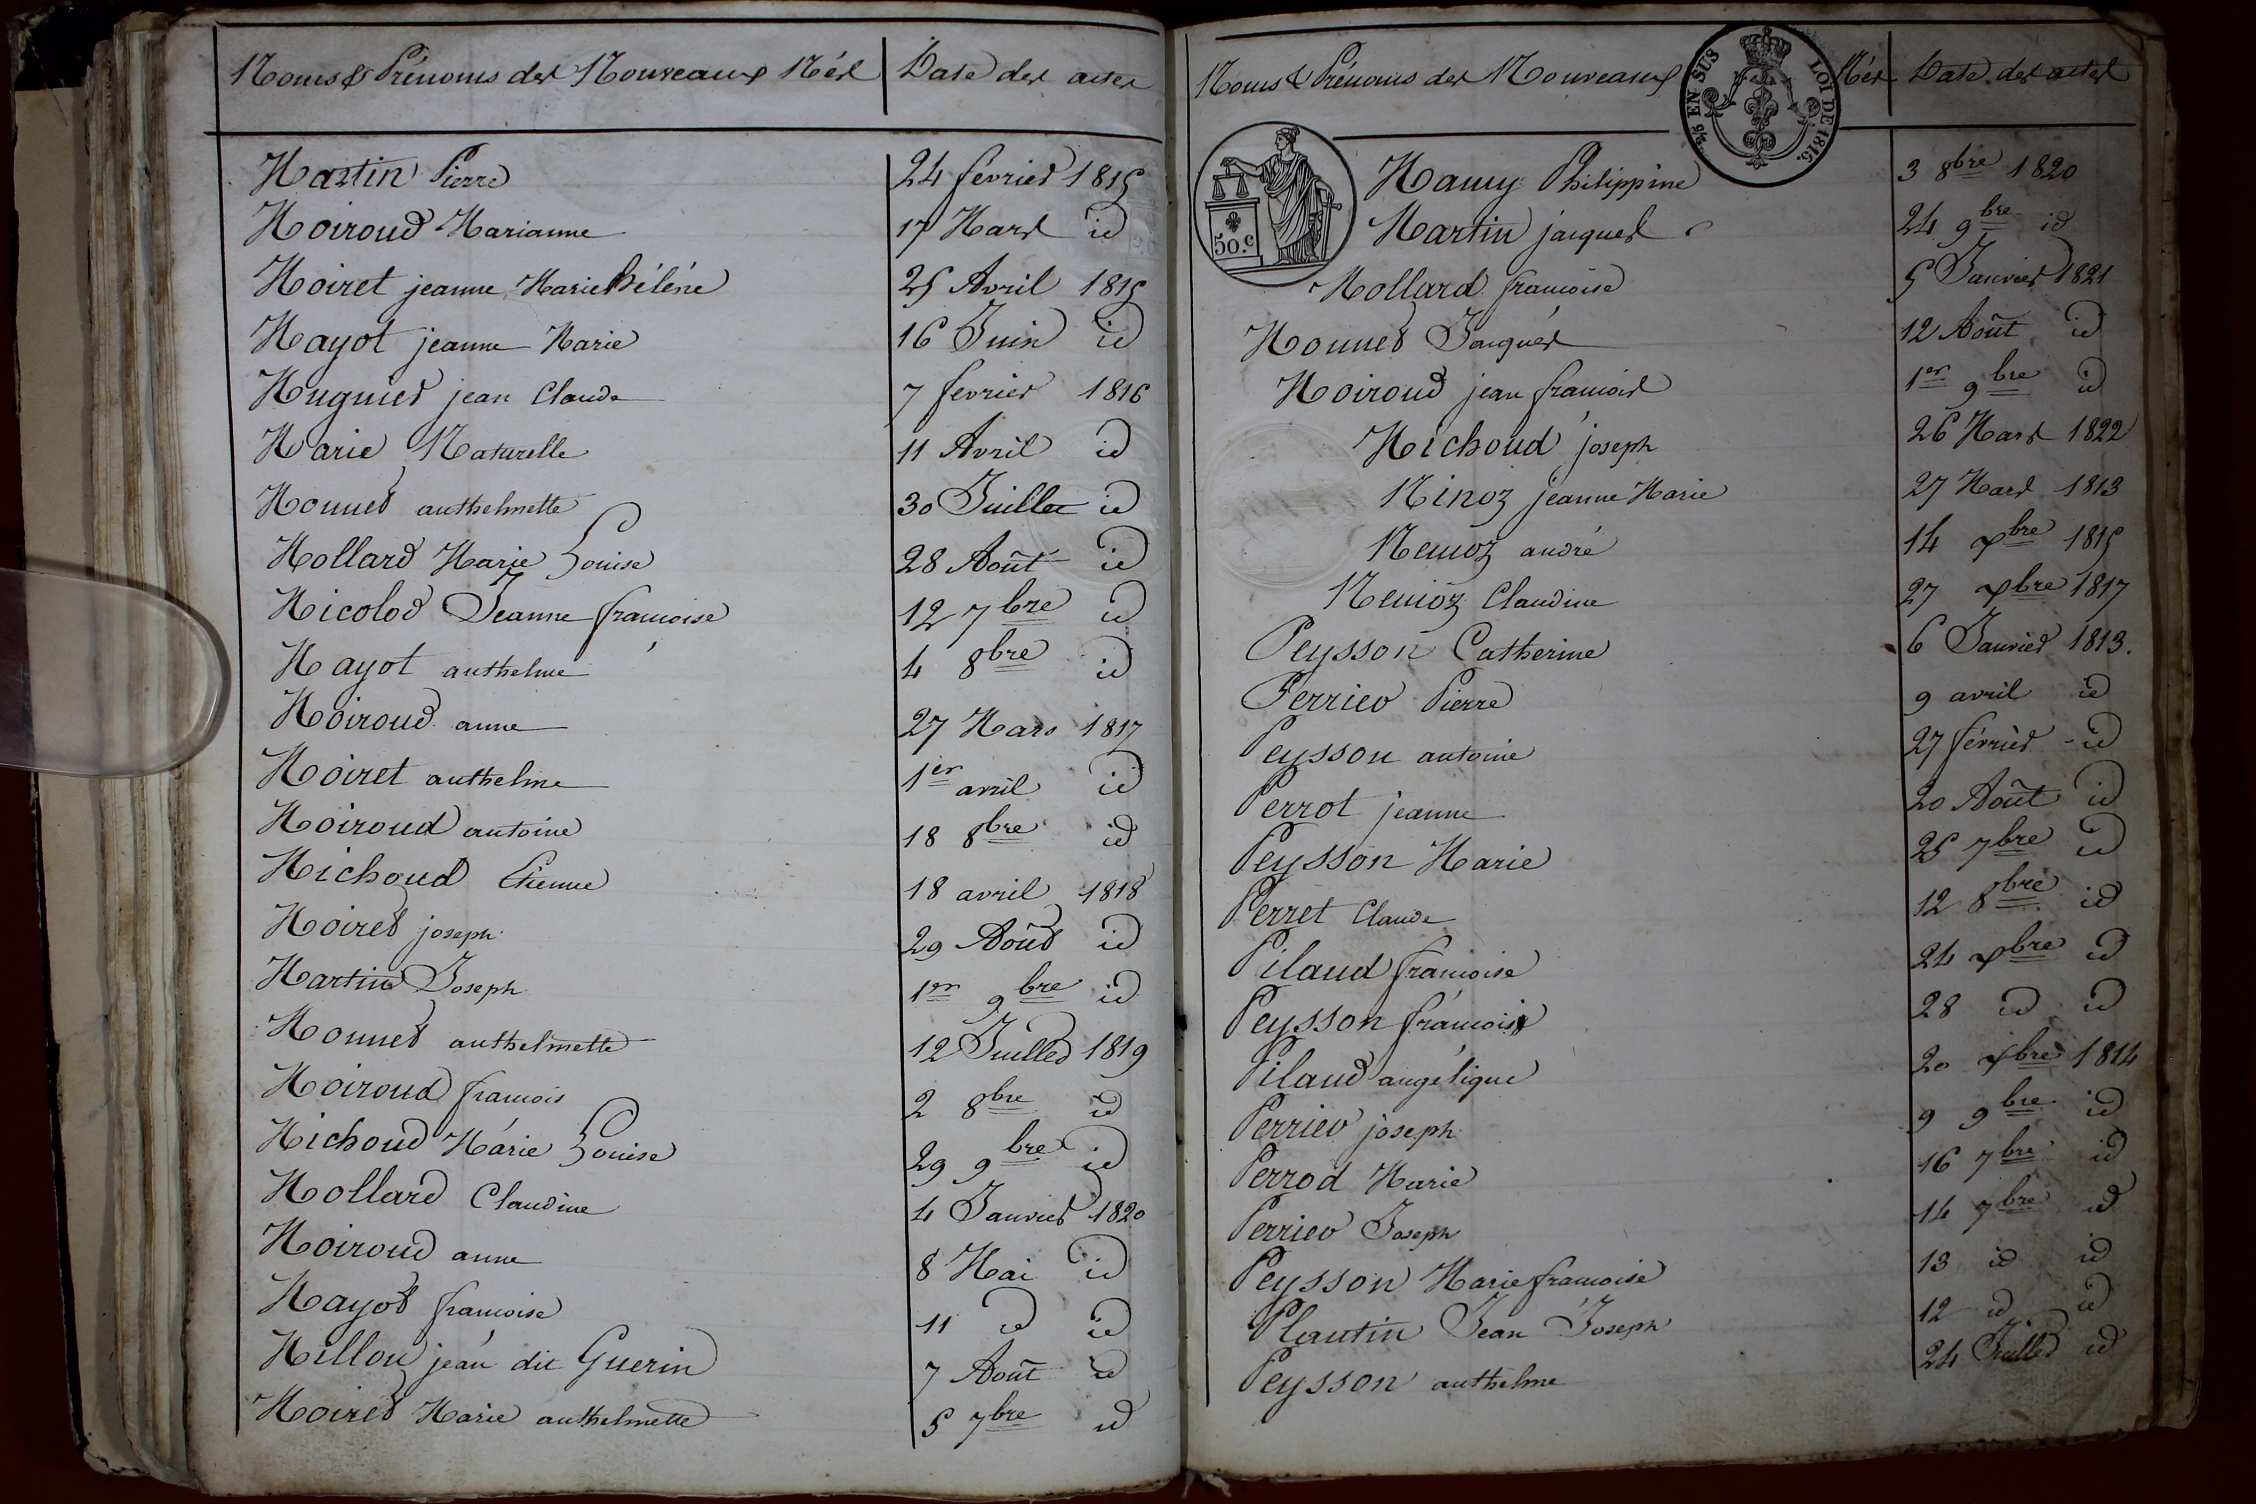 Noms & Prénoms des Nouveaux Nés Date des actes
Martin Pierre 24 fevrier 1815
Moiroud Marianne 17 Mars id
Moiret jeanne Marie hélène 25 Avril 1815
Mayot jeanne Marie 16 Juin id
Muguier jean Claude 7 fevrier 1816
Marie Naturelle 11 Avril id
Monnet anthelmette 30 Juillet id
Mollard Marie Louise 28 Août id
Nicolod Jeanne francoise 12 7bre id
Mayot anthelme 4 8bre id
Moiroud anne 27 Mars 1817
Moiret anthelme 1er avril id
Moiroud antoine 18 8bre id
Michoud Etienne 18 avril 1818
Moiret joseph 29 Août id
Martin Joseph 1er 9bre id
Monnet anthelmette 12 Juillet 1819
Moiroud francois 2 8bre id
Michoud Marie Louise 29 9bre id
Mollard Claudine 4 Janvier 1820
Moiroud anne 8 Mai id
Mayot francoise 11 id id
Millon jean dit Guerin 7 Août id
Moiret Marie anthelmette 5 7bre id
Noms & Prénoms des Nouveaux Nés Date des actes
EN SUS LOI DE 1816.
50.c
Mamy Philippine 3 8bre 1820
Martin jacques 24 9bre id
Mollard francoise 5 Janvier 1821
Monnet Jacques 12 Août id
Moiroud jean francois 1er 9bre id
Michoud joseph 26 Mars 1822
Ninoz jeanne Marie 27 Mars 1813
Nemoz andré 14 xbre 1815
Nemoz Claudine 27 xbre 1817
Peysson Catherine 6 Janvier 1813.
Perrier Pierre 9 avril id
Peysson antoine 27 février id
Perrot jeanne 20 Août id
Peysson Marie 25 7bre id
Perret Claude 12 8bre id
Pilaud francoise 24 xbre id
Peysson francois 28 id id
Pilaud angélique 20 xbre 1814
Perrier joseph 9 9bre id
Perrod Marie 16 7bre id
Perrier Joseph 14 7bre id
Peysson Marie francoise 13 id id
Plantin Jean Joseph 12 id id
Peysson anthelme 24 Juillet id